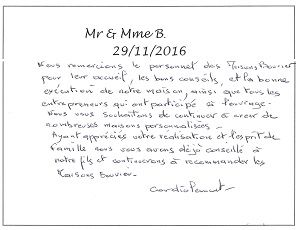 Mr & Mme B.
29/11/2016
Nous remercions le personnel des Maisons Bouvier
pour leur accueil, les bons conseils, et la bonne
exécution de notre maison, ainsi que tous les
entrepreneurs qui ont participé à l'ouvrage.
Nous vous souhaitons de continuer à créer de
nombreuses maisons personnalisées.
Ayant appréciés votre réalisation et l'esprit de
famille nous vous avons déjà conseillé à
notre fils et continuerons à recommander les
Maisons Bouvier.